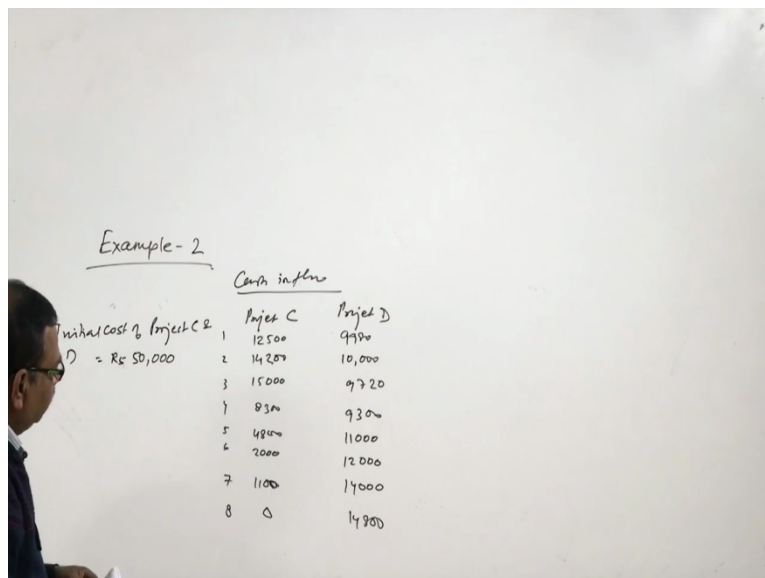 Example - 2
Cash inflow
Initial cost of Project C &
D = Rs 50,000
Project C Project D
1 12500 9980
2 14200 10,000
3 15000 9720
4 8300 9300
5 4800 11000
6 2000 12000
7 1100 14000
8 0 14800